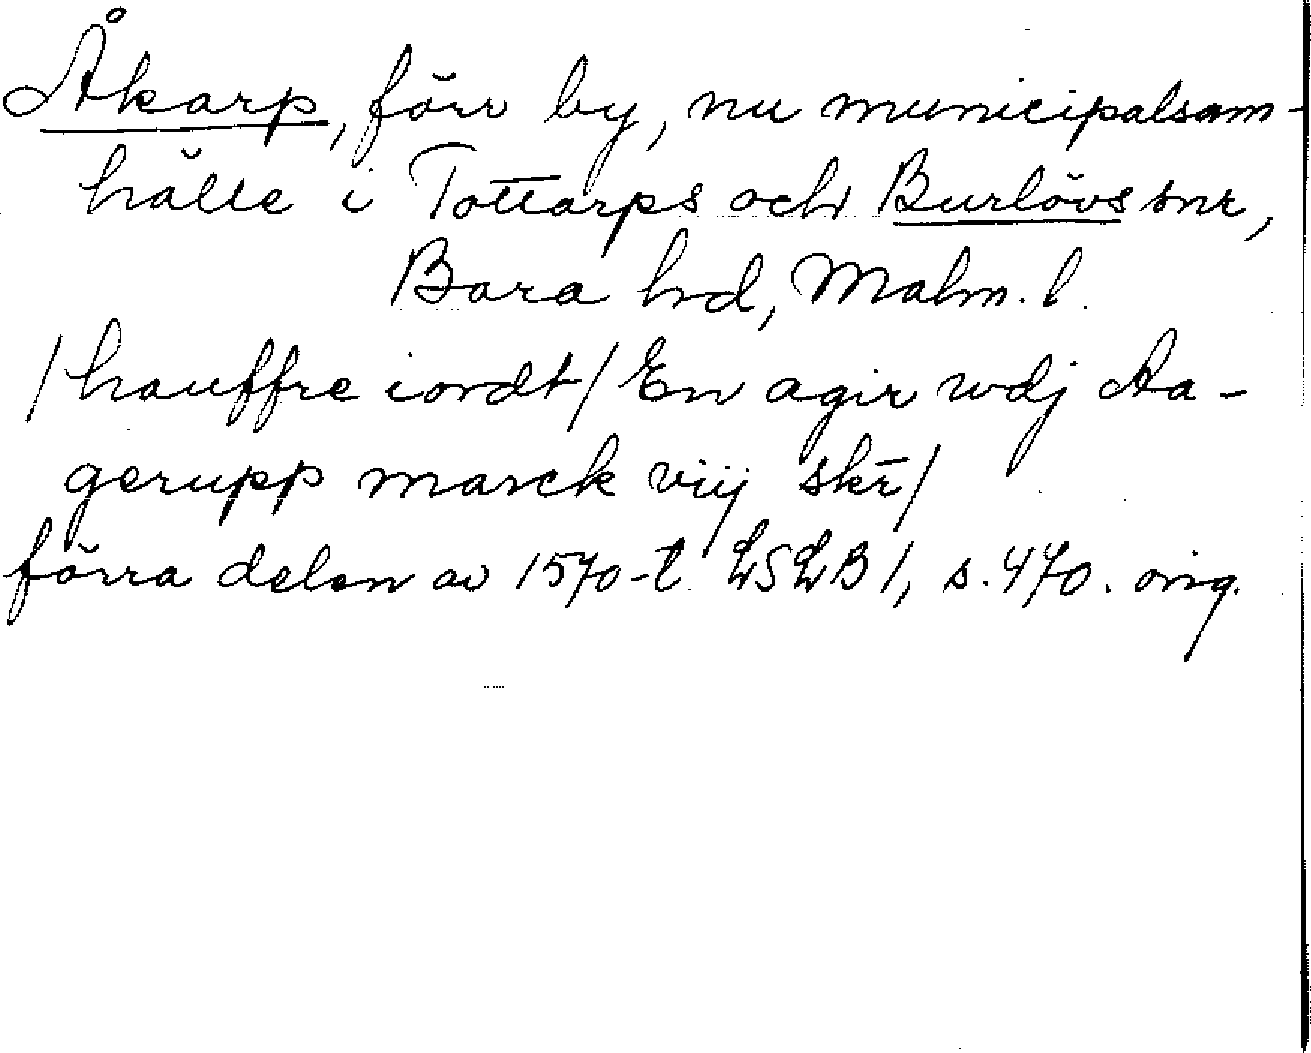 Åkarp, förr by, nu municipalsam-
hälle i Tottarps och Burlövs snr,
Bara hd, Malm. l.
/hauffre iordt/ En agir wdj Aa-
gerupp marck viij skr̄/
förra delen av 1570-t. LSLB 1, s. 470. orig.